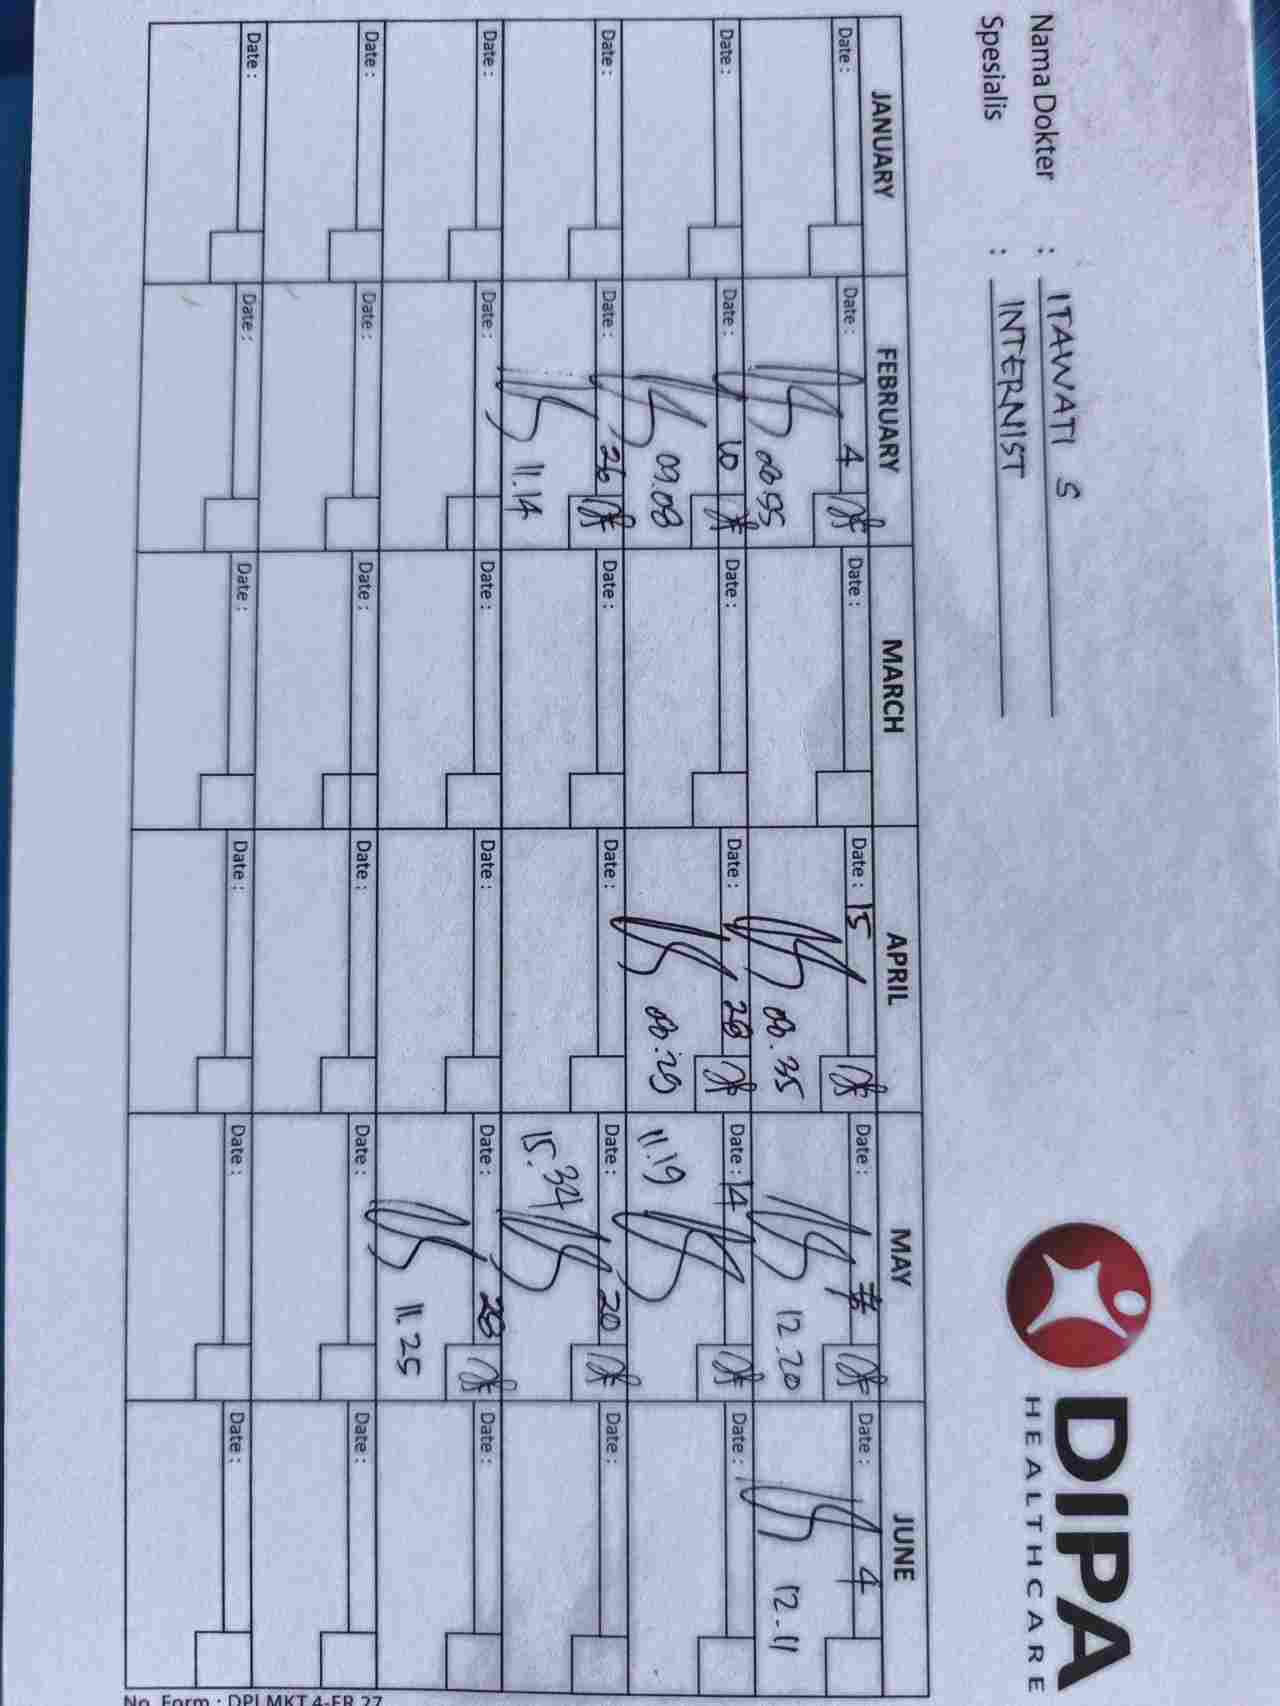 DIPA
HEALTHCARE
Nama Dokter : ITAWATI S
Spesialis : INTERNIST
JANUARY FEBRUARY MARCH APRIL MAY JUNE
Date : Date : 4 Date : Date : 15 Date : Date : 4
08.55 08.35 12.20 12.11
Date : Date : 10 Date : Date : 28 Date : 14 Date :
09.08 08.29 11.19
Date : Date : 26 Date : Date : Date : 20 Date :
11.14 15.34
Date : Date : Date : Date : Date : 28 Date :
11.25
Date : Date : Date : Date : Date : Date :
Date : Date : Date : Date : Date : Date :
No. Form : DPI.MKT 4-FR.27